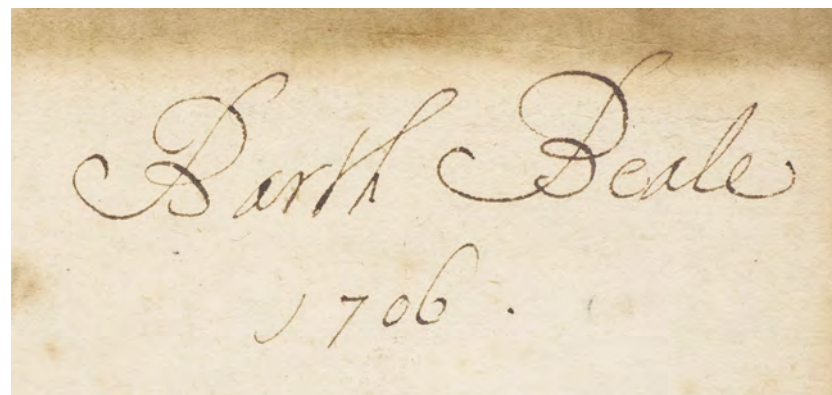 Barth Beale
1706.